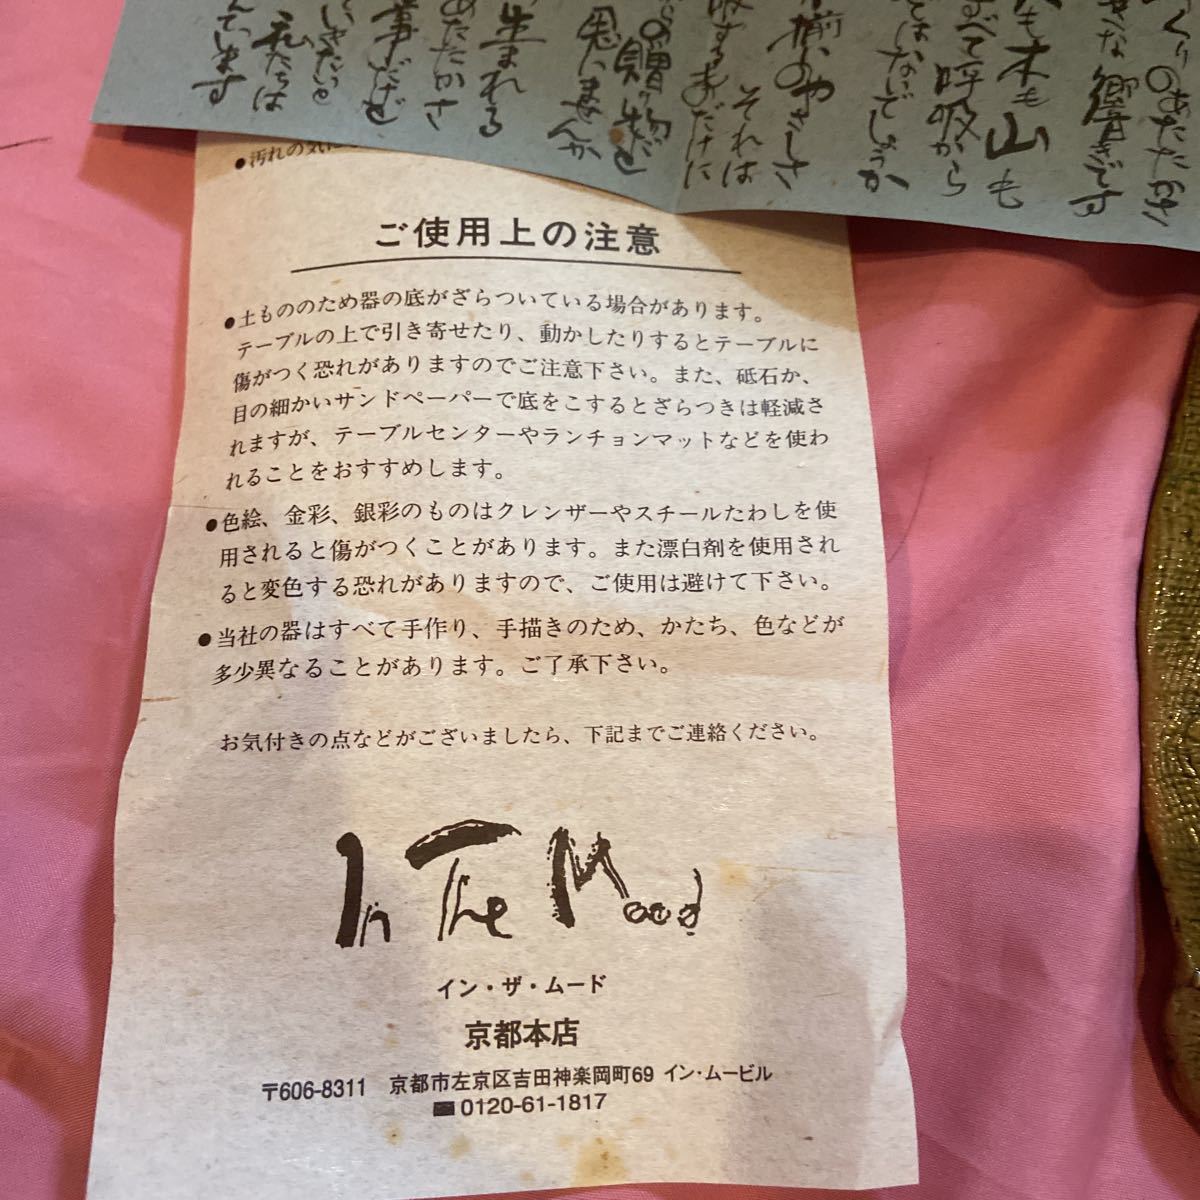 くりのあたたかさ
な響きです
も木も山も
べて呼吸から
ではないでしょうか
揃いのやさしさ
それは
するまだけに
の贈り物だと
思いませんか
生まれる
あたたかさ
事だけど
いきたいと
私たちは
ています
●汚れの気に
ご使用上の注意
●土もののため器の底がざらついている場合があります。
テーブルの上で引き寄せたり、動かしたりするとテーブルに
傷がつく恐れがありますのでご注意下さい。また、砥石か、
目の細かいサンドペーパーで底をこするとざらつきは軽減さ
れますが、テーブルセンターやランチョンマットなどを使わ
れることをおすすめします。
●色絵、金彩、銀彩のものはクレンザーやスチールたわしを使
用されると傷がつくことがあります。また漂白剤を使用され
ると変色する恐れがありますので、ご使用は避けて下さい。
●当社の器はすべて手作り、手描きのため、かたち、色などが
多少異なることがあります。ご了承下さい。
お気付きの点などがございましたら、下記までご連絡ください。
In The Mood
イン・ザ・ムード
京都本店
〒606-8311 京都市左京区吉田神楽岡町69 イン・ムービル
0120-61-1817